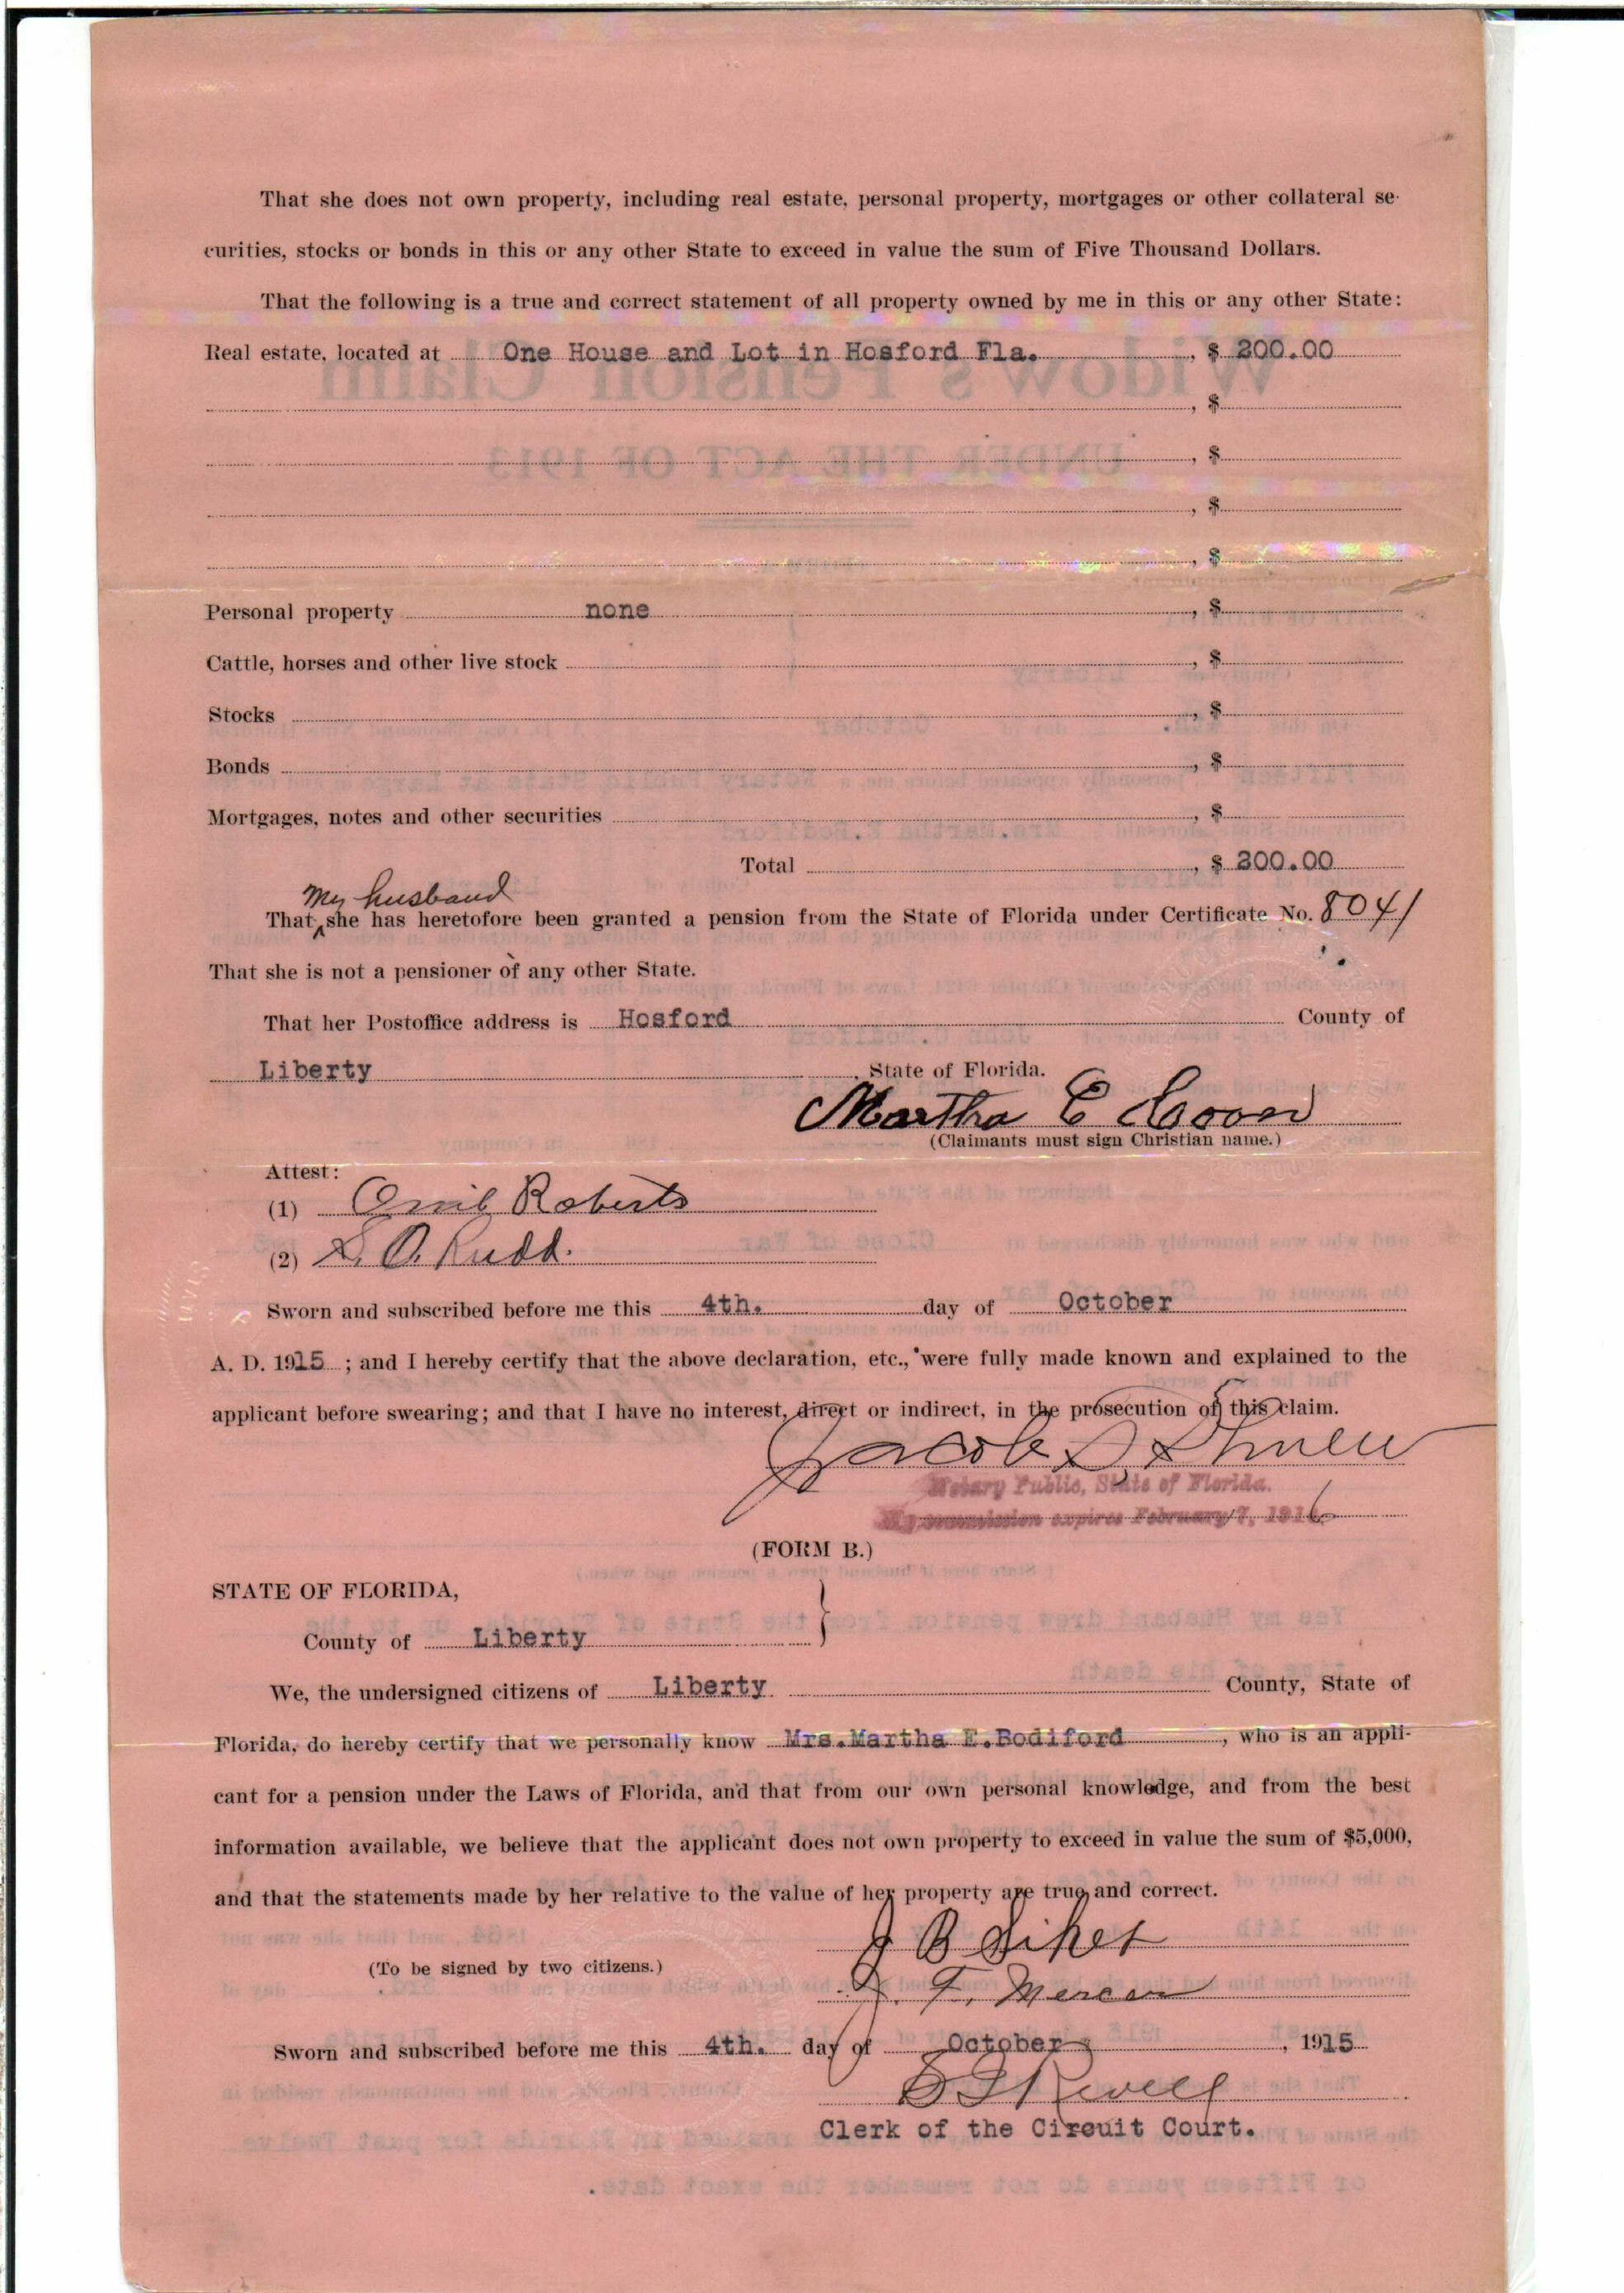 That she does not own property, including real estate, personal property, mortgages or other collateral se-
curities, stocks or bonds in this or any other State to exceed in value the sum of Five Thousand Dollars.
That the following is a true and correct statement of all property owned by me in this or any other State:
Real estate, located at One House and Lot in Hosford Fla. , $ 200.00
, $
, $
, $
, $
Personal property none , $
Cattle, horses and other live stock , $
Stocks , $
Bonds , $
Mortgages, notes and other securities , $
Total , $ 200.00
My husband
That ^ she has heretofore been granted a pension from the State of Florida under Certificate No. 8041
That she is not a pensioner of any other State.
That her Postoffice address is Hosford County of
Liberty , State of Florida.
Martha E
(Claimants must sign Christian name.)
Attest:
(1) Roberts
(2) Rudd.
Sworn and subscribed before me this 4th. day of October
A. D. 1915 ; and I hereby certify that the above declaration, etc., were fully made known and explained to the
applicant before swearing; and that I have no interest, direct or indirect, in the prosecution of this claim.
Jacob
Notary Public, State of Florida.
My commission expires February 7, 1916
(FORM B.)
STATE OF FLORIDA,
County of Liberty }
We, the undersigned citizens of Liberty County, State of
Florida, do hereby certify that we personally know Mrs.Martha E.Bodiford , who is an appli-
cant for a pension under the Laws of Florida, and that from our own personal knowledge, and from the best
information available, we believe that the applicant does not own property to exceed in value the sum of $5,000,
and that the statements made by her relative to the value of her property are true and correct.
J B Sikes
(To be signed by two citizens.)
J. F. Mercer
Sworn and subscribed before me this 4th. day of October , 1915
Revell
Clerk of the Circuit Court.